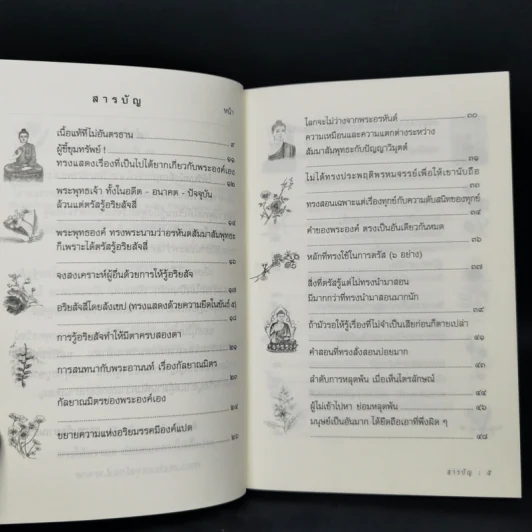 สารบัญ
หน้า
เนื้อแท้ที่ไม่อันตรธาน
๙
ผู้ชี้ขุมทรัพย์ !
๑๑
ทรงแสดงเรื่องที่เป็นไปได้ยากเกี่ยวกับพระองค์เอง
๑๒
พระพุทธเจ้า ทั้งในอดีต - อนาคต - ปัจจุบัน
ล้วนแต่ตรัสรู้อริยสัจสี่
๑๕
พระพุทธองค์ ทรงพระนามว่าอรหันตสัมมาสัมพุทธะ
ก็เพราะได้ตรัสรู้อริยสัจสี่
๑๖
จงสงเคราะห์ผู้อื่นด้วยการให้รู้อริยสัจ
๑๗
อริยสัจสี่โดยสังเขป (ทรงแสดงด้วยความยึดในขันธ์ ๕)
๑๘
การรู้อริยสัจทำให้มีตาครบสองตา
๒๑
การสนทนากับพระอานนท์ เรื่องกัลยาณมิตร
กัลยาณมิตรของพระองค์เอง
ขยายความแห่งอริยมรรคมีองค์แปด
โลกจะไม่ว่างจากพระอรหันต์
๓๐
ความเหมือนและความแตกต่างระหว่าง
สัมมาสัมพุทธะกับปัญญาวิมุตต์
๓๑
ไม่ได้ทรงประพฤติพรหมจรรย์เพื่อให้เขานับถือ
๓๓
ทรงสอนเฉพาะแต่เรื่องทุกข์กับความดับสนิทของทุกข์
๓๔
คำของพระองค์ ตรงเป็นอันเดียวกันหมด
๓๖
หลักที่ทรงใช้ในการตรัส (๖ อย่าง)
๓๗
สิ่งที่ตรัสรู้แต่ไม่ทรงนำมาสอน
มีมากกว่าที่ทรงนำมาสอนมากนัก
๓๙
ถ้ามัวรอให้รู้เรื่องที่ไม่จำเป็นเสียก่อนก็ตายเปล่า
๔๑
คำสอนที่ทรงสั่งสอนบ่อยมาก
ลำดับการหลุดพ้น เมื่อเห็นไตรลักษณ์
๔๕
ผู้ไม่เข้าไปหา ย่อมหลุดพ้น
๔๖
มนุษย์เป็นอันมาก ได้ยึดถือเอาที่พึ่งผิด ๆ
๔๘
สารบัญ : ๕